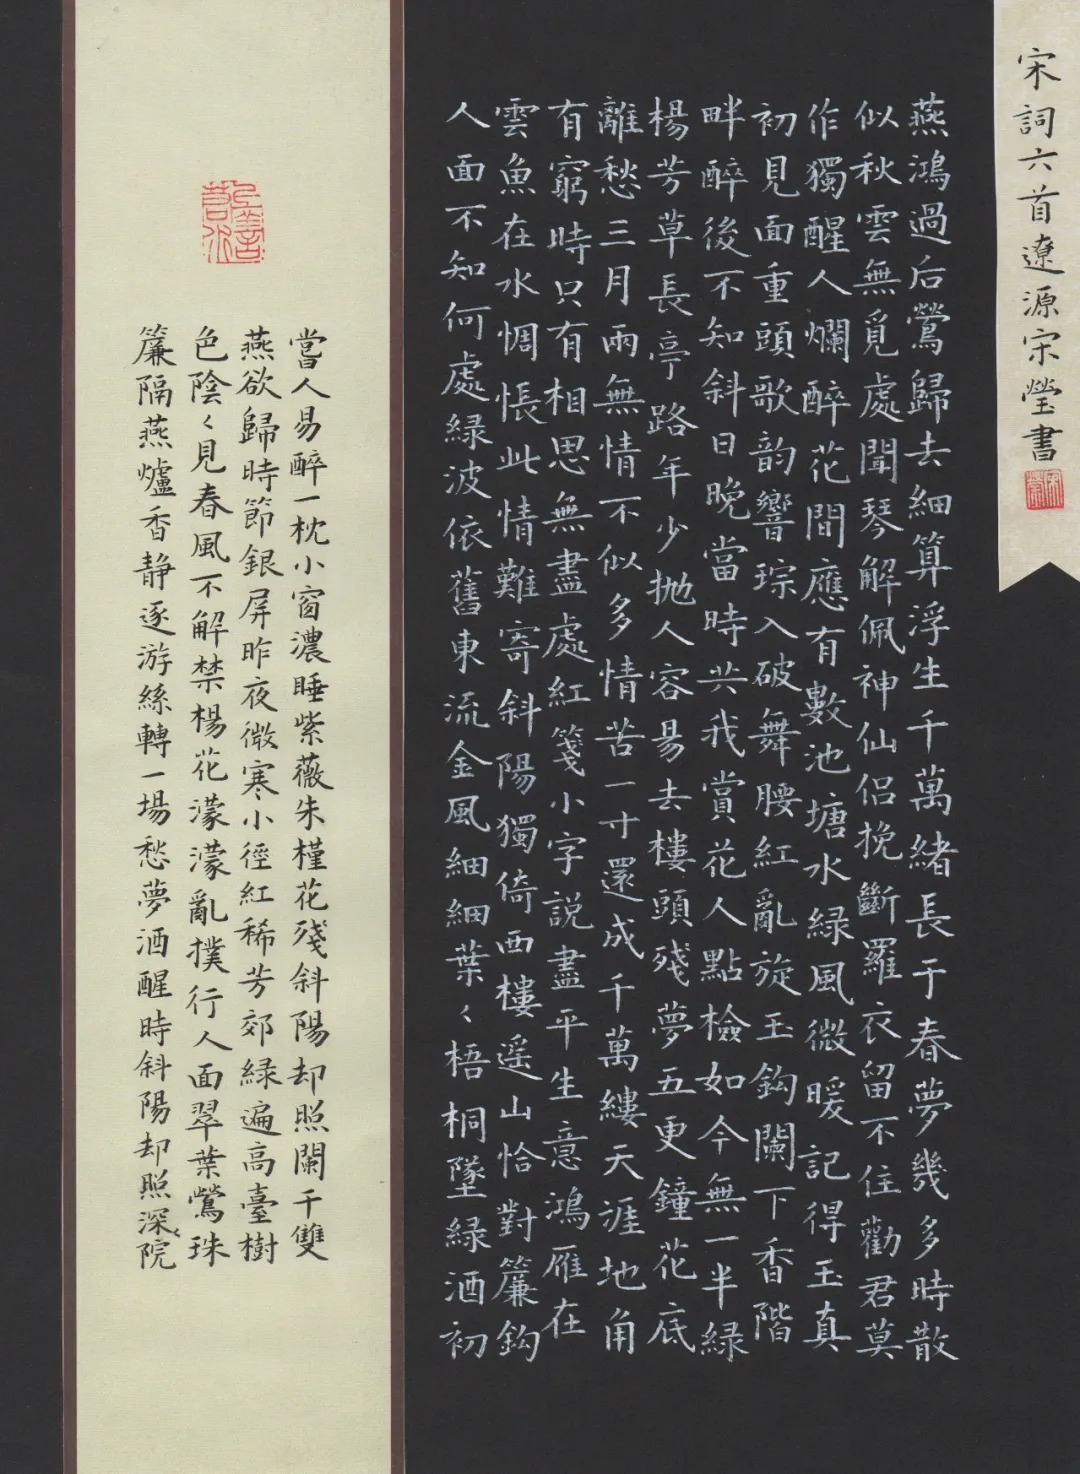 宋詞六首遼源宋瑩書
宋瑩
燕鴻過后鶯歸去細算浮生千萬緒長于春夢幾多時散
似秋雲無覓處聞琴解佩神仙侣挽斷羅衣留不住勸君莫
作獨醒人爛醉花間應有數池塘水緑風微暖記得玉真
初見面重頭歌韵響琮入破舞腰紅亂旋玉鈎闌下香階
畔醉後不知斜日晚當時共我賞花人點檢如今無一半緑
楊芳草長亭路年少抛人容易去樓頭殘夢五更鐘花底
離愁三月雨無情不似多情苦一寸還成千萬縷天涯地角
有窮時只有相思無盡處紅箋小字説盡平生意鴻雁在
雲魚在水惆悵此情難寄斜陽獨倚西樓遥山恰對簾鈎
人面不知何處緑波依舊東流金風細細葉々梧桐墜緑酒初
上善若水
嘗人易醉一枕小窗濃睡紫薇朱槿花殘斜陽却照闌干雙
燕欲歸時節銀屏昨夜微寒小徑紅稀芳郊緑遍高臺樹
色陰々見春風不解禁楊花濛濛亂撲行人面翠葉鶯珠
簾隔燕爐香静逐游絲轉一場愁夢酒醒時斜陽却照深々院